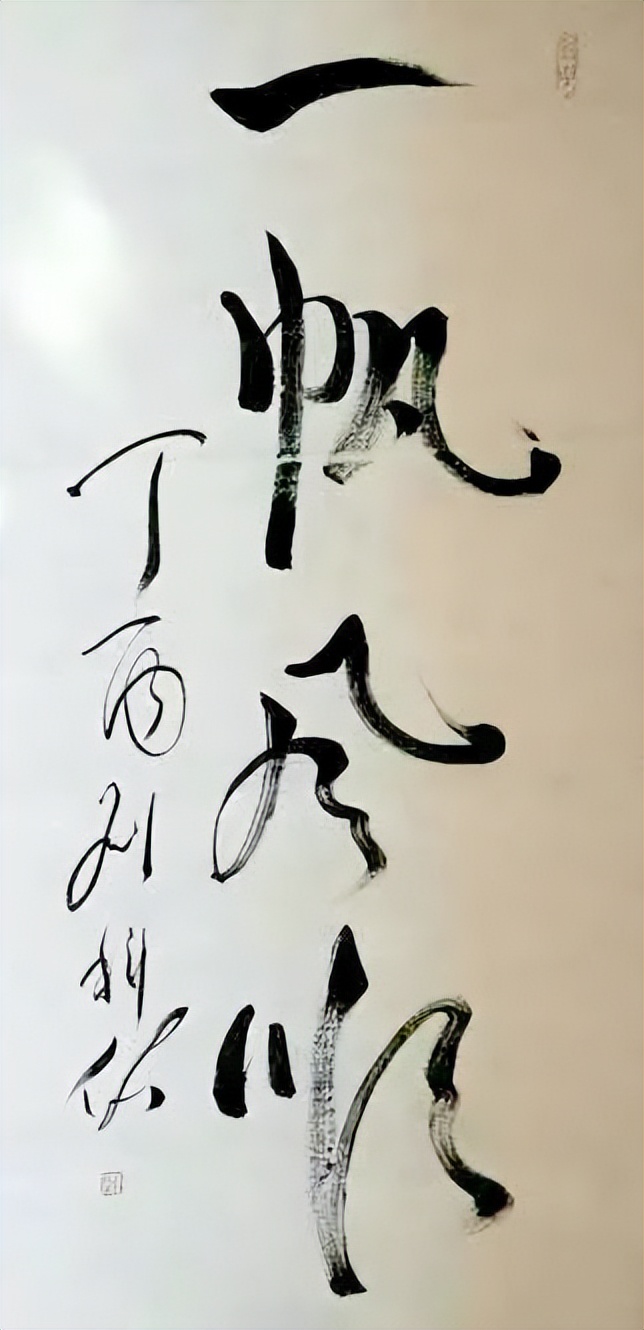 一帆风顺
丁酉刘科作